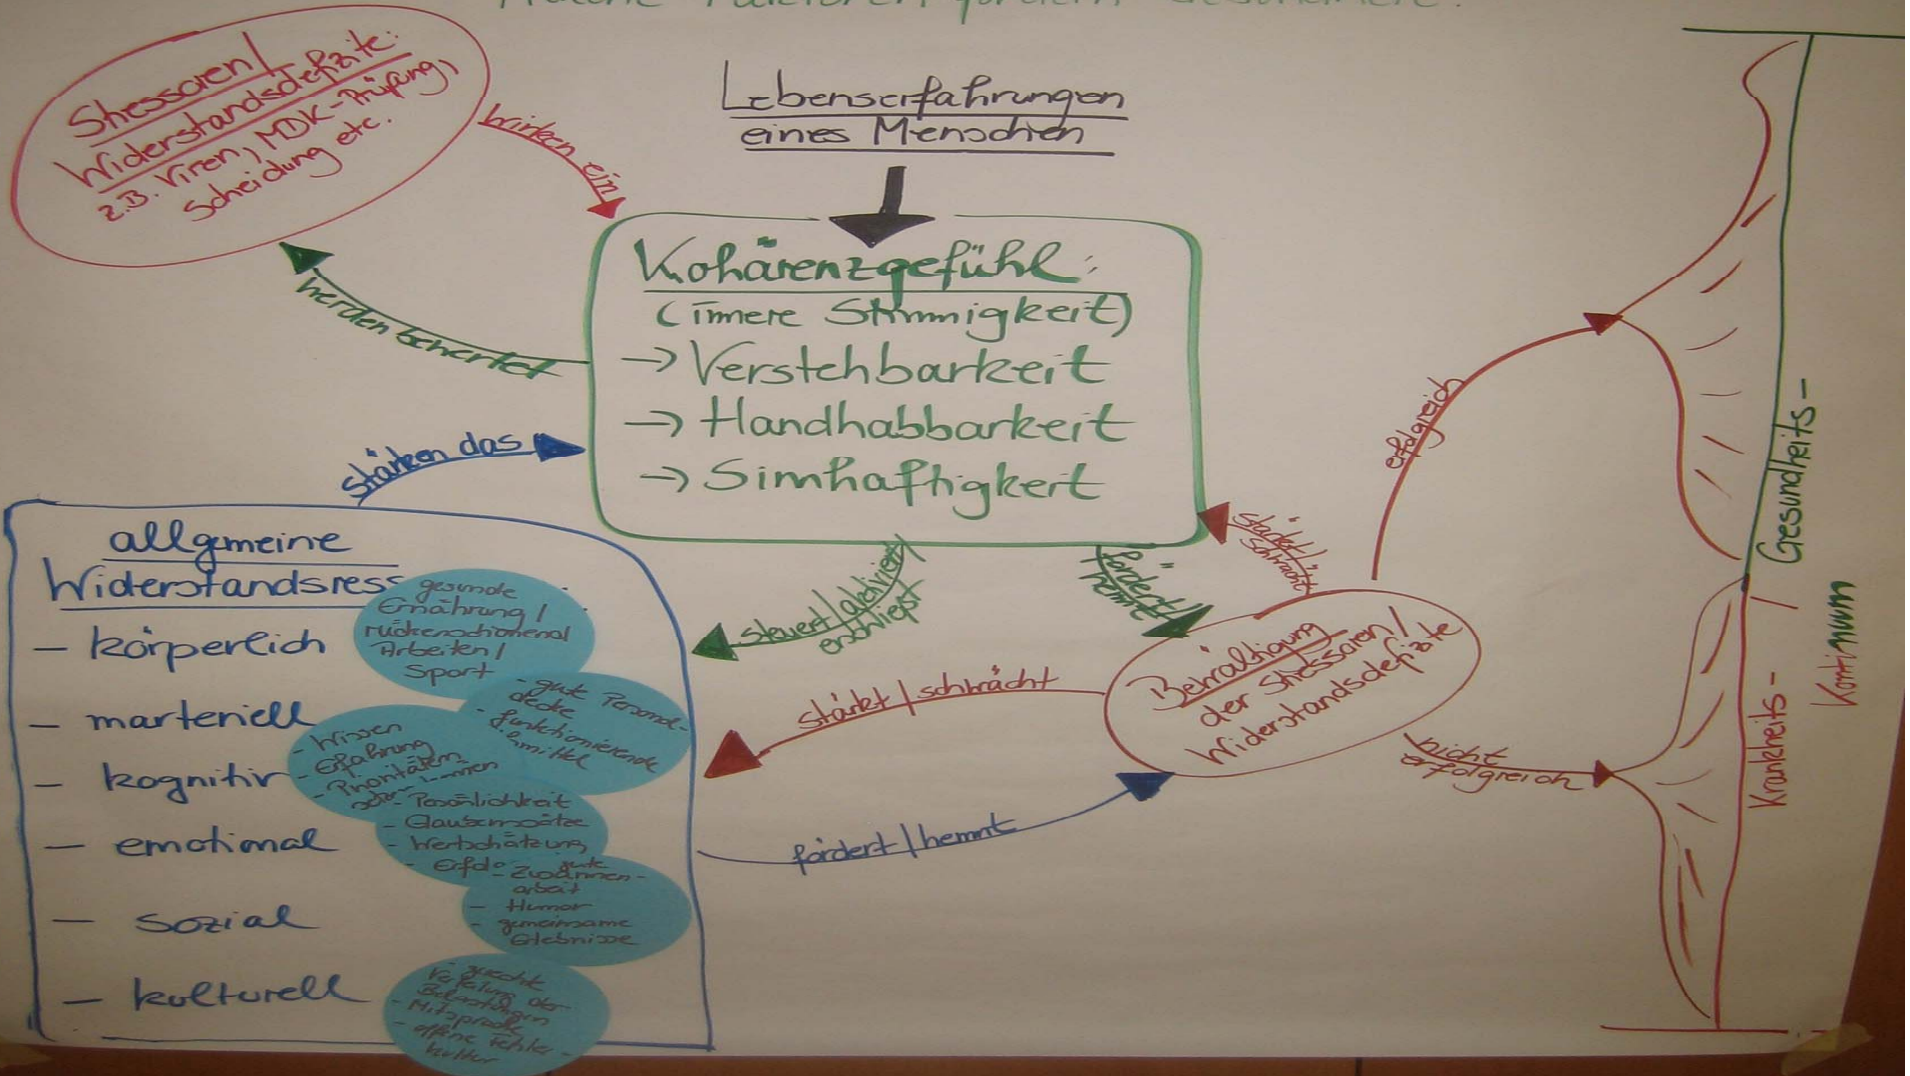 Welche Faktoren fördern Gesundheit?
Stressoren/
Widerstandsdefizite:
z.B. Viren, MDK-Prüfung,
Scheidung etc.
wirken ein
Lebenserfahrungen
eines Menschen
Kohärenzgefühl:
(innere Stimmigkeit)
→ Verstehbarkeit
→ Handhabbarkeit
→ Sinnhaftigkeit
werden bewertet
stärken das
allgemeine
Widerstandsress
- körperlich
- marteriell
- kognitiv
- emotional
- sozial
- kulturell
gesunde
Ernährung /
rückenschonend
Arbeiten /
Sport
- gute Personal-
decke
- funktionierende
mittel
- Wissen
- Erfahrung
- Prioritäten
- Persönlichkeit
- Glaubenssätze
- Wertschätzung
- Erfol
- gute
Zusammen-
arbeit
- Humor
- gemeinsame
Erlebnisse
- gerechte
Verteilung der
Belastungen
- Mitsprache
- offene Fehler-
kultur
steuert / aktiviert /
erschließt
fördert /
hemmt
stärkt /
schwächt
Bewältigung
der Stressoren /
Widerstandsdefizite
stärkt / schwächt
fördert / hemmt
erfolgreich
nicht
erfolgreich
Gesundheits-
/
Krankheits-
Kontinuum